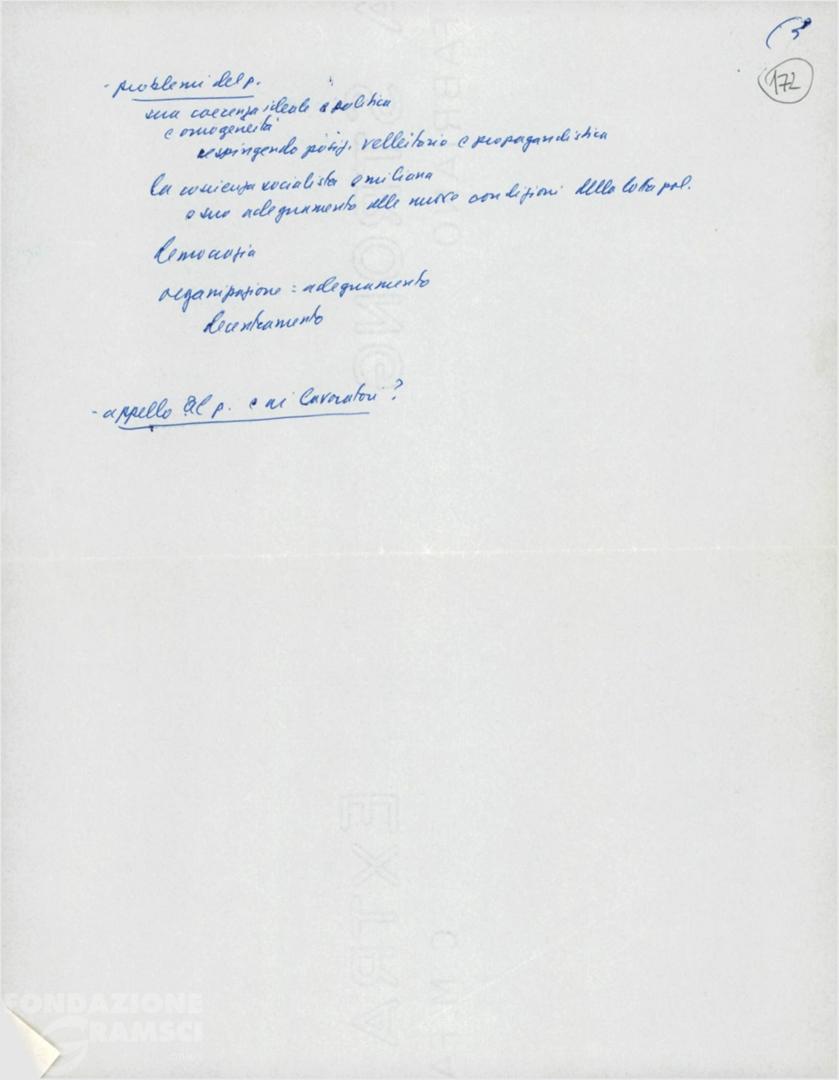 3
172
- problemi del p.
sua coerenza ideale e politica
e omogeneità
respingendo posiz. velleitaria e propagandistica
la coscienza socialista emiliana
e suo adeguamento alle nuove condizioni della lotta pol.
democrazia
organizzazione = adeguamento
decentramento
- appello al p. e ai lavoratori?
FONDAZIONE
GRAMSCI